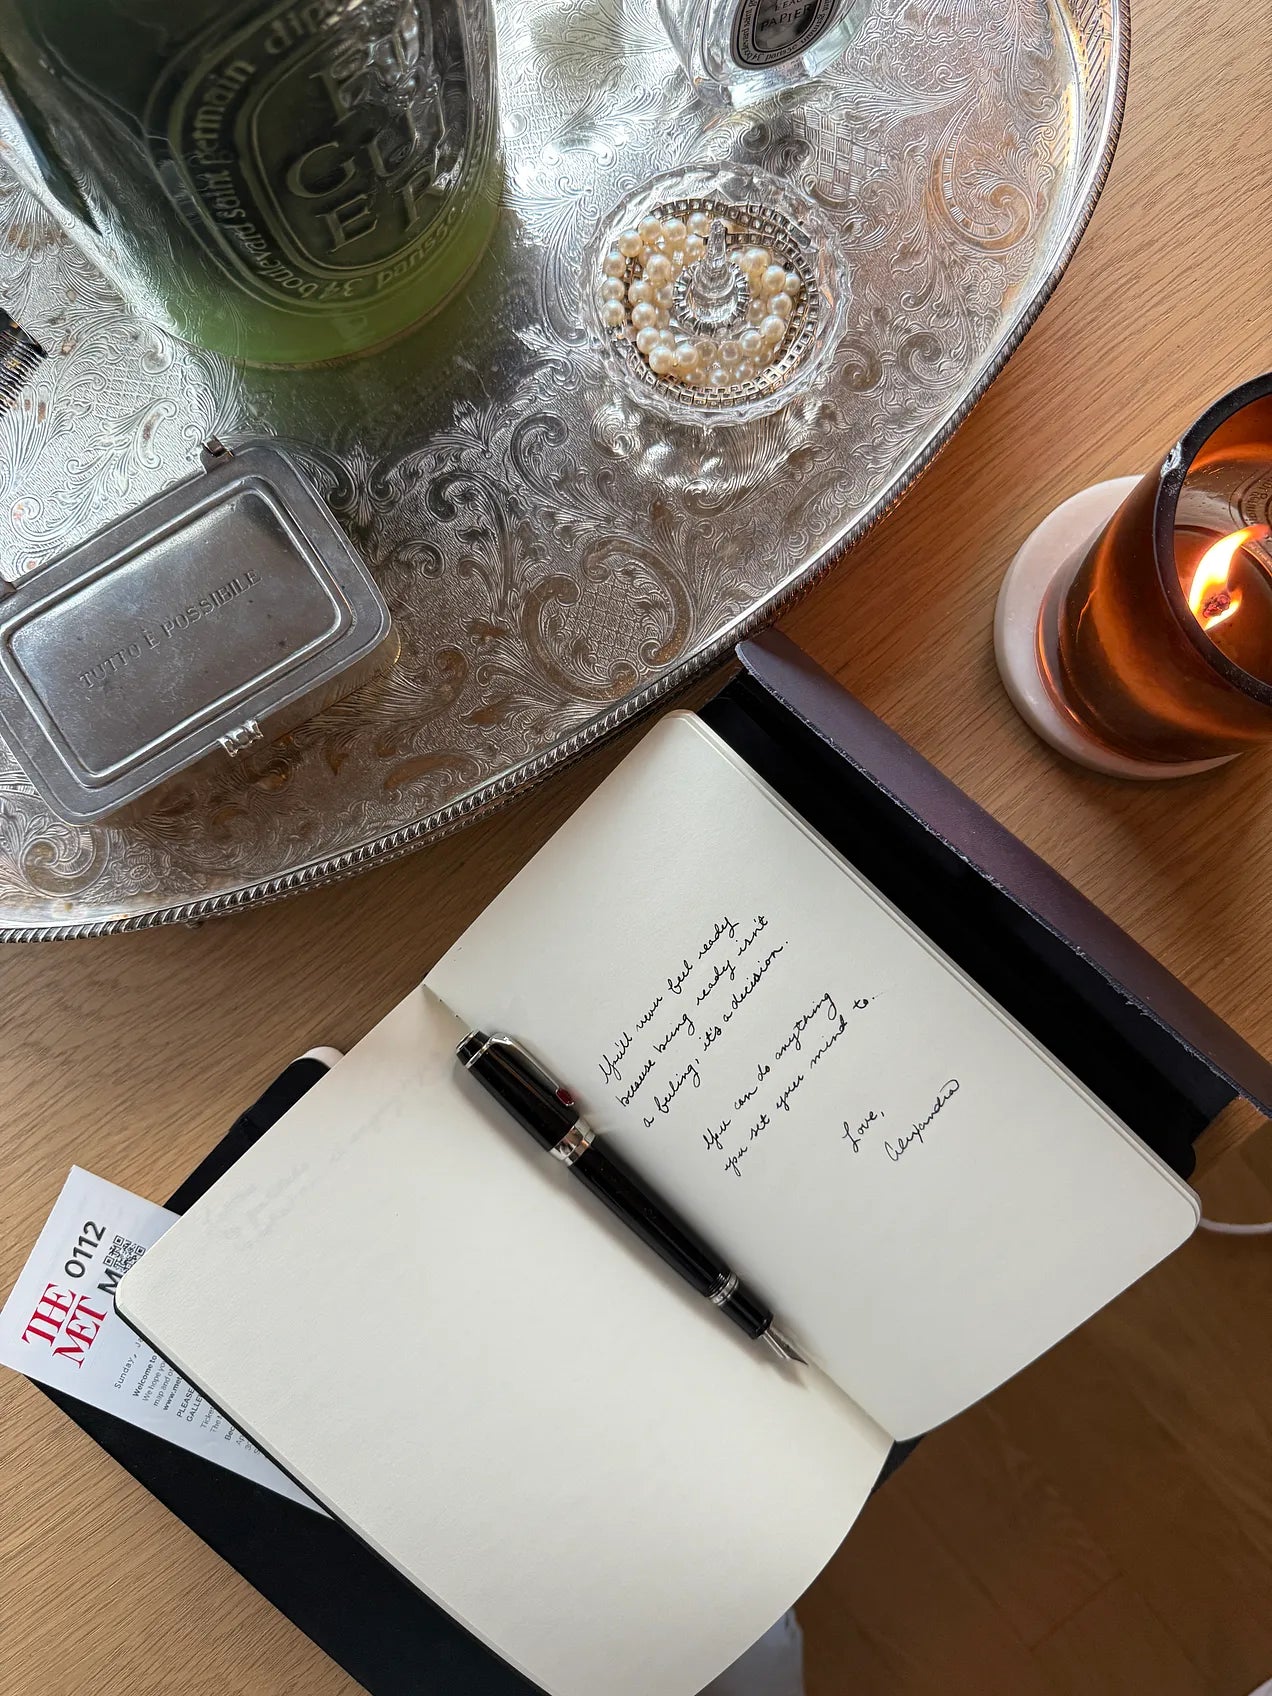 34 boulevard saint germain
F
GUI
ER
L'EAU
PAPIER
TUTTO È POSSIBILE
You'll never feel ready
because being ready isn't
a feeling; it's a decision.
You can do anything
you set your mind to.
Love,
Alexandra
THE
MET
0112
M
Sunday,
Welcome to
We hope you
map and
www.met
PLEASE
GALLE